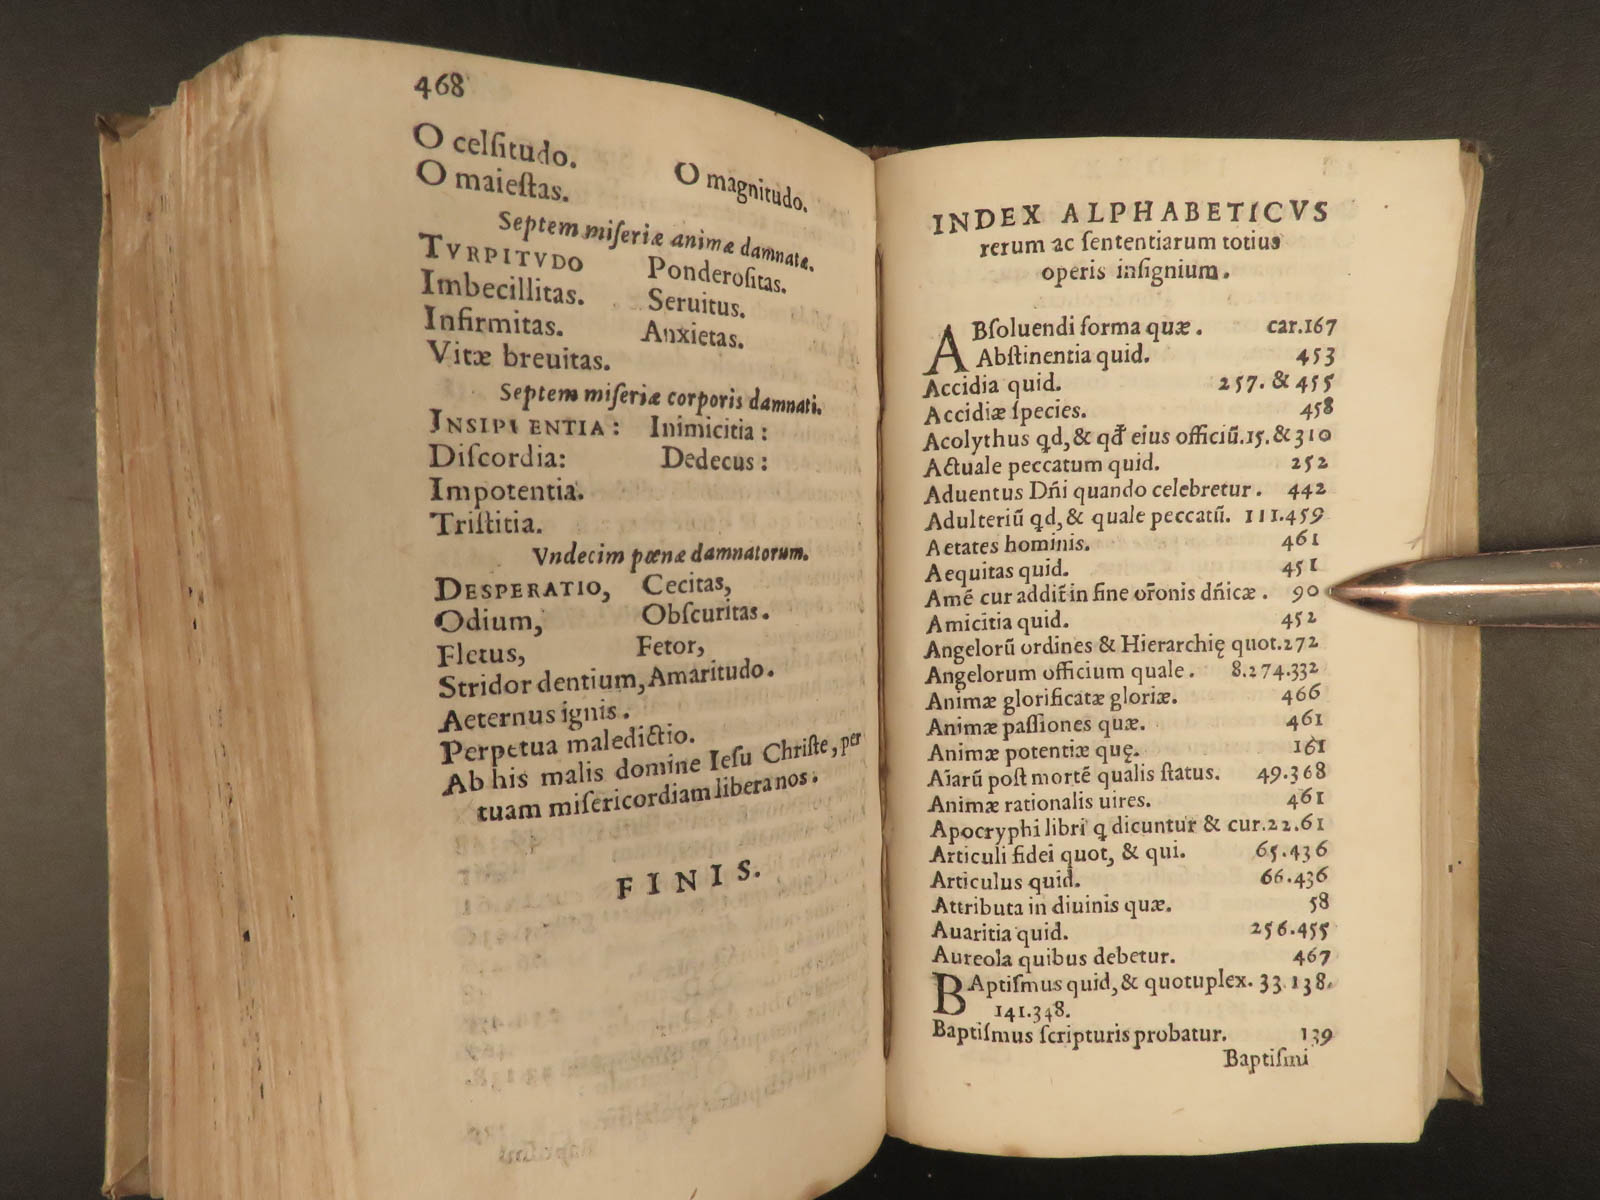 468
O celſitudo.
O maieſtas. O magnitudo.
Septem miſeriæ animæ damnatæ.
TVRPITVDO Ponderoſitas.
Imbecillitas. Seruitus.
Infirmitas. Anxietas.
Vitæ breuitas.
Septem miſeriæ corporis damnati.
INSIPIENTIA: Inimicitia:
Diſcordia: Dedecus:
Impotentia.
Triſtitia.
Vndecim pœnæ damnatorum.
DESPERATIO, Cecitas,
Odium, Obſcuritas.
Fletus, Fetor,
Stridor dentium, Amaritudo.
Aeternus ignis.
Perpetua maledictio.
Ab his malis domine Ieſu Chriſte, per
tuam miſericordiam libera nos.
FINIS.
INDEX ALPHABETICVS
rerum ac ſententiarum totius
operis inſignium.
ABſoluendi forma quæ. car.167
Abſtinentia quid. 453
Accidia quid. 257. & 455
Accidiæ ſpecies. 458
Acolythus qd, & qđ eius officiũ.15.&310
Actuale peccatum quid. 252
Aduentus Dñi quando celebretur. 442
Adulteriũ qd, & quale peccatũ. 111.459
Aetates hominis. 461
Aequitas quid. 451
Amẽ cur addit̃ in fine or̃onis dñicæ. 90
Amicitia quid. 452
Angelorũ ordines & Hierarchię quot.272
Angelorum officium quale. 8.274.332
Animæ glorificatæ gloriæ. 466
Animæ paſſiones quæ. 461
Animæ potentiæ quę. 161
Aĩarũ poſt mortẽ qualis ſtatus. 49.368
Animæ rationalis uires. 461
Apocryphi libri q dicuntur & cur.22.61
Articuli fidei quot, & qui. 65.436
Articulus quid. 66.436
Attributa in diuinis quæ. 58
Auaritia quid. 256.455
Aureola quibus debetur. 467
BAptiſmus quid, & quotuplex. 33.138.
141.348.
Baptiſmus ſcripturis probatur. 139
Baptiſmi